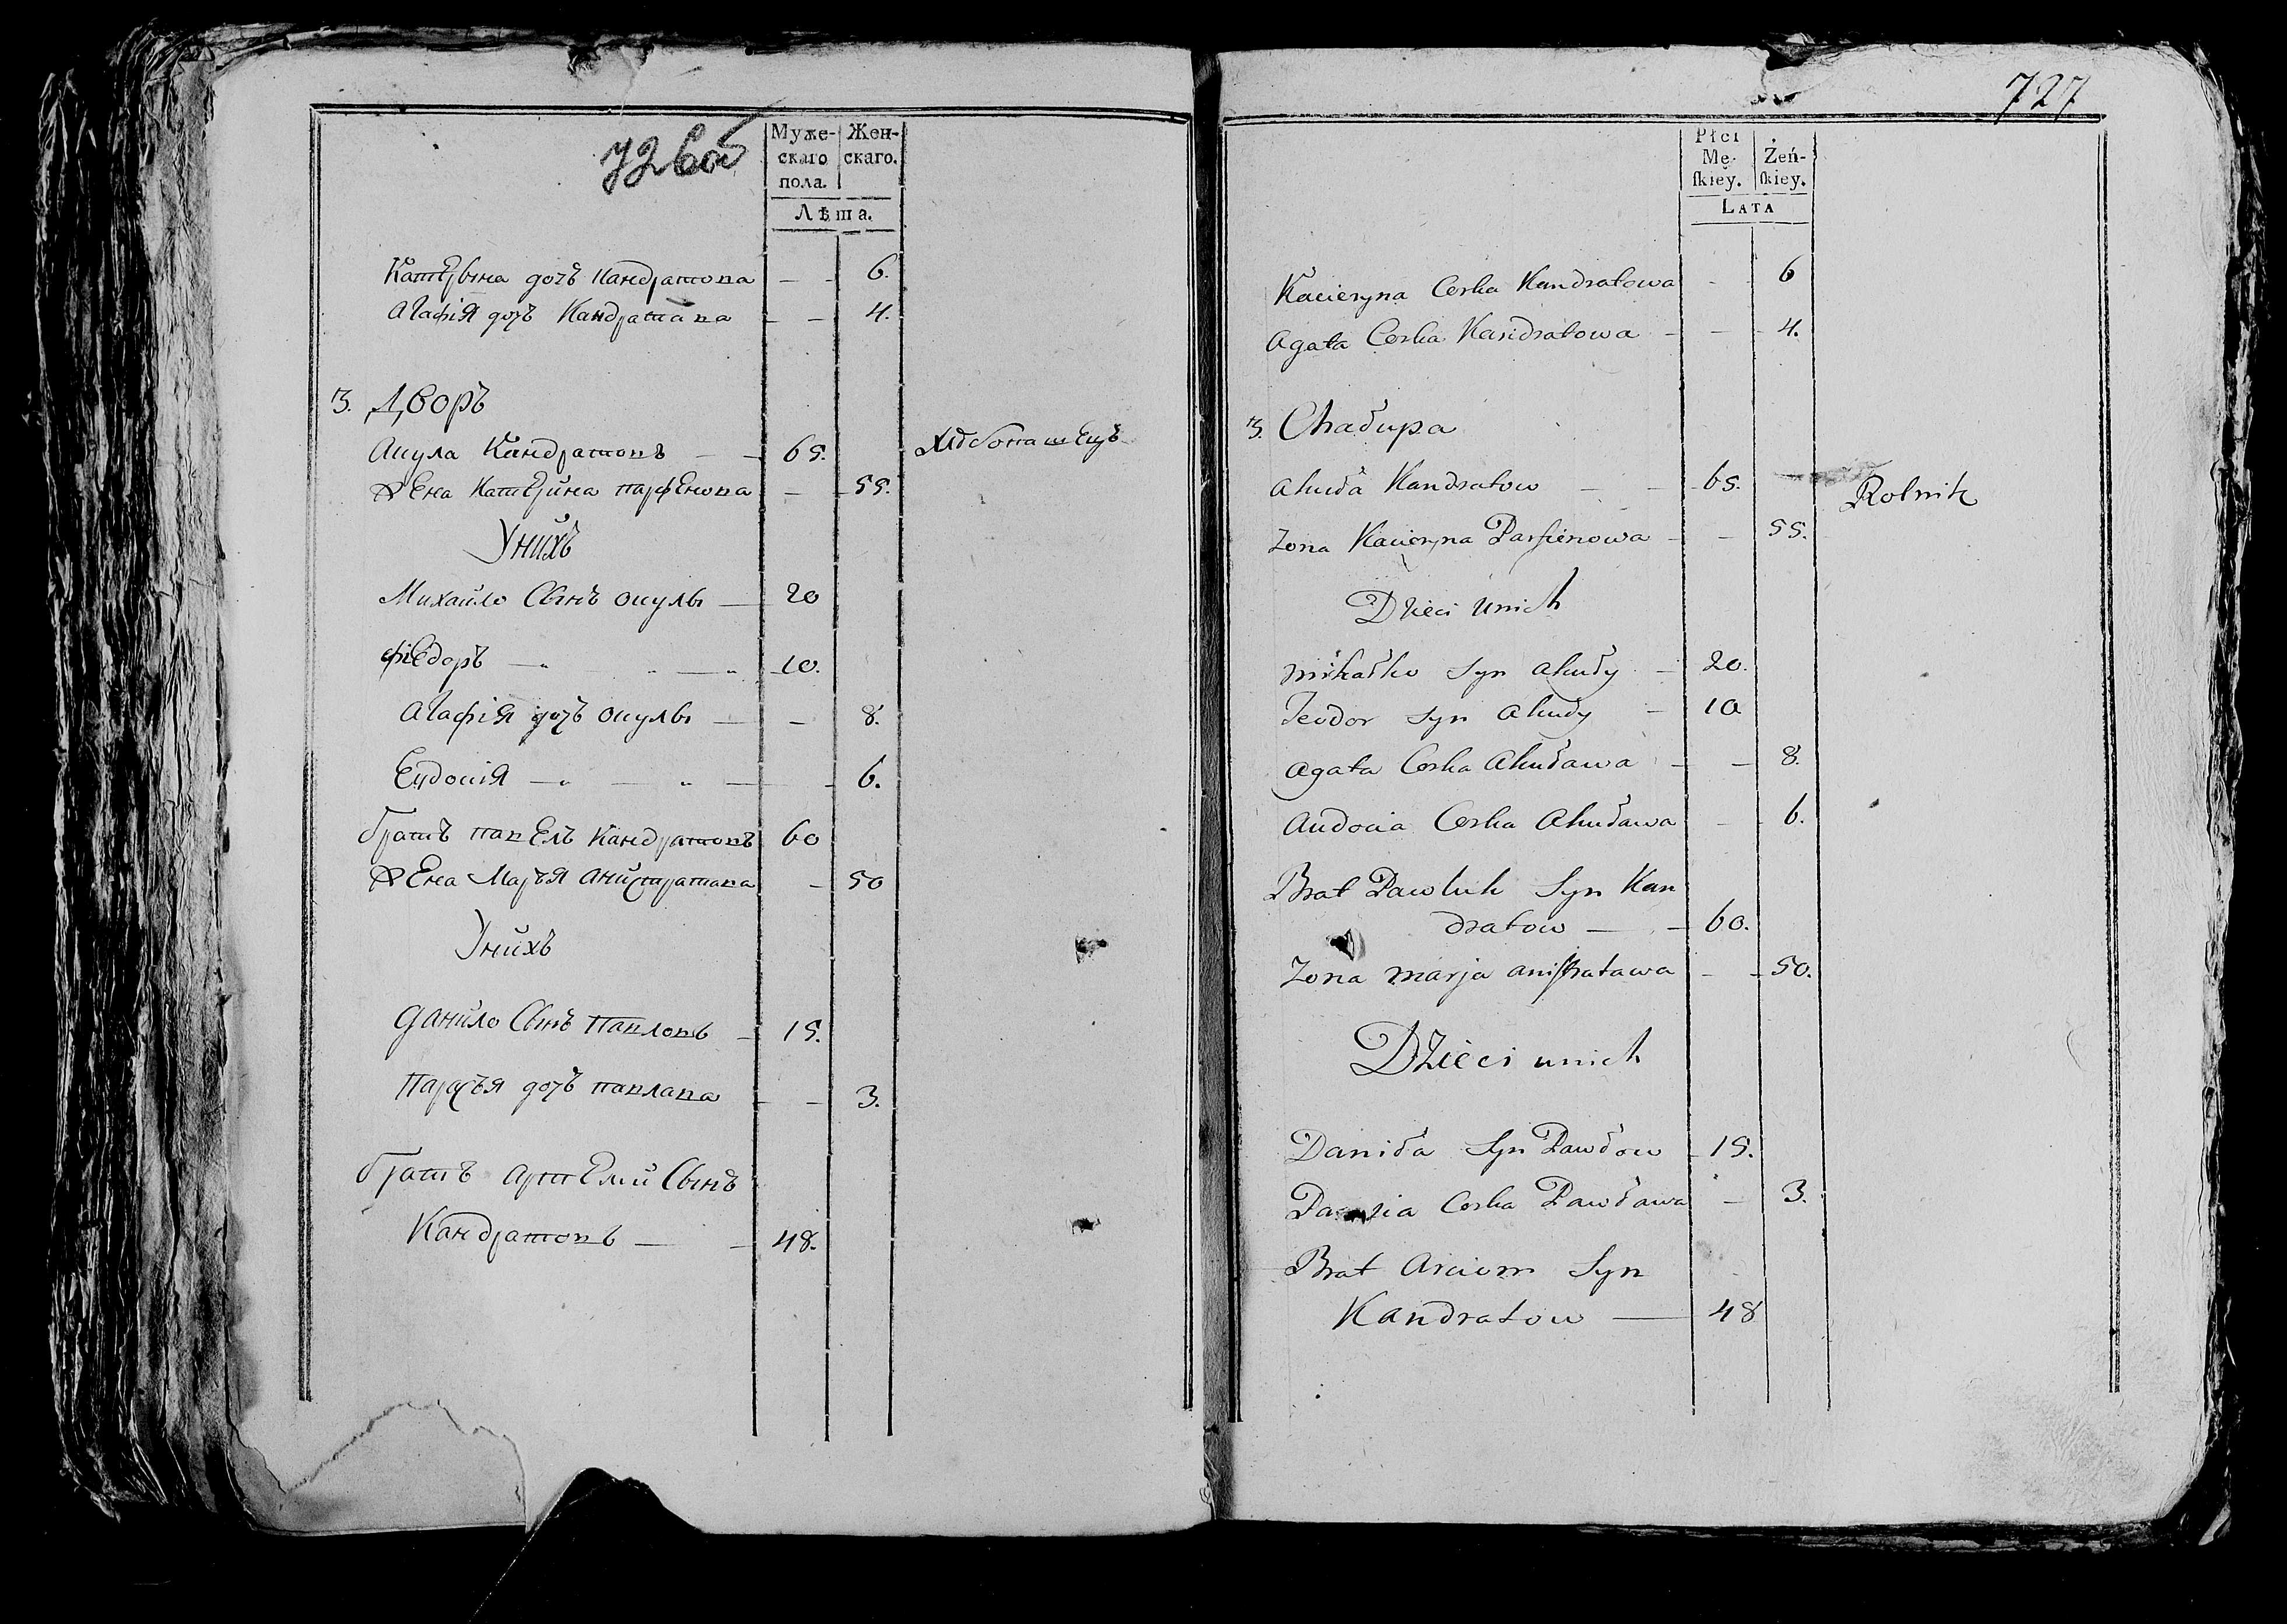 726об
Муже- Жен-
скаго скаго.
пола.
Лѣта.
Катерына дочъ Кандратова — - 6.
Агафія дочъ Кандратава — — 4.
3. Дворъ
Акула Кандратовъ — — 65. Хлѣбопашецъ
Жена Катерина парфенова — 55.
Унихъ
Михайло Сынъ окулы — 20
фіедоръ — „ — „ 10.
Агафія дочъ окулы — — 8.
Еудокія — „ — „ — 6.
братъ павелъ Кандратовъ 60
Жена Марья анистратава - 50
Унихъ
данило Сынъ Павловъ — 15.
Парасъя дочъ павлава — — 3.
братъ артемій Сынъ
Кандратовъ — — 48.
727
Płci
Mę- Żeń-
skiey. skiey.
LATA
Kacieryna Corka Kandratowa - 6
Agata Corka Kandratowa — — 4.
3. Chałupa
Akuła Kandratow — — 65. Rolnik
Zona Kacieryna Parfienowa — — 55.
Dzieci unich
michałko Syn akuły — 20.
Teodor Syn Akuły — 10
Agata Corka Akuława — — 8.
Audocia Corka Akuława — 6.
Brat Pawluk Syn Kan
dratow — — 60.
Zona marja anistratawa — 50.
Dzieci unich
Daniła Syn Pawłow 15.
Corka Pawława — 3.
Brat Arciom Syn
Kandratow — 48